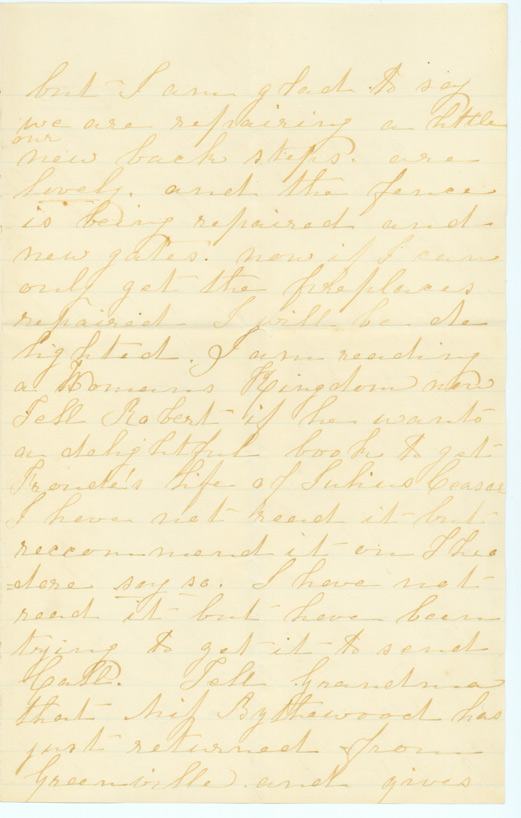 but I am glad to say
we are repairing a little
our
new back steps. are
lovely. and the fence
is being repaired and
new gates. now if I can
only get the fireplaces
repaired I will be de
lighted. I am reading
a Womans Kingdom now
Tell Robert if he wants
a delightful book to get
Froude's life of Julius Ceasar
I have not read it but
reccommend it on Theo
=dore say so. I have not
read it but have been
trying to get it to send
Tell Grandma
that Miss Bythewood has
just returned from
Greenville and gives